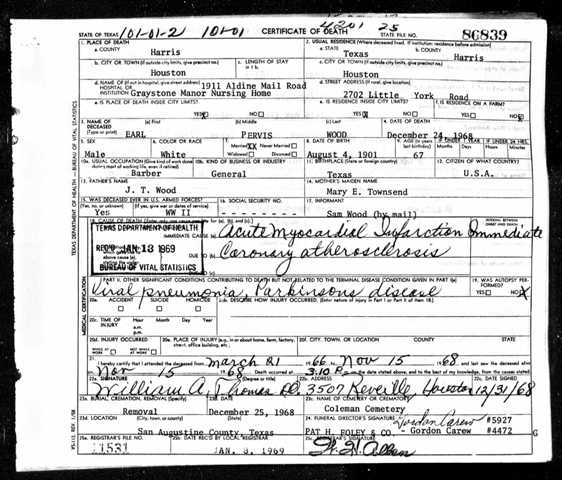 4201 25
STATE OF TEXAS 101-01-2 101-01 CERTIFICATE OF DEATH STATE FILE NO. 86839
1. PLACE OF DEATH 2. USUAL RESIDENCE (Where deceased lived. If institution: residence before admission)
a. COUNTY Harris a. STATE Texas b. COUNTY Harris
b. CITY OR TOWN (If outside city limits, give precinct no.) c. LENGTH OF STAY in 1 b. c. CITY OR TOWN (If outside city limits, give precinct no.)
Houston Houston
d. NAME OF (If not in hospital, give street address) HOSPITAL OR INSTITUTION 1911 Aldine Mail Road d. STREET ADDRESS (If rural, give location)
Graystone Manor Nursing Home 2702 Little York Road
e. IS PLACE OF DEATH INSIDE CITY LIMITS? e. IS RESIDENCE INSIDE CITY LIMITS? f. IS RESIDENCE ON A FARM?
YES NO YES NO YES NO
3. NAME OF DECEASED (Type or print) (a) First (b) Middle (c) Last 4. DATE OF DEATH
EARL PERVIS WOOD December 24, 1968
5. SEX 6. COLOR OR RACE 7. Married Never Married Widowed Divorced 8. DATE OF BIRTH 9. AGE (In years last birthday) IF UNDER 1 YEAR IF UNDER 24 HRS.
Male White August 4, 1901 67
10a. USUAL OCCUPATION (Give kind of work done during most of working life, even if retired) 10b. KIND OF BUSINESS OR INDUSTRY 11. BIRTHPLACE (State or foreign country) 12. CITIZEN OF WHAT COUNTRY?
Barber General Texas U.S.A.
13. FATHER'S NAME 14. MOTHER'S MAIDEN NAME
J. T. Wood Mary E. Townsend
15. WAS DECEASED EVER IN U.S. ARMED FORCES? 16. SOCIAL SECURITY NO. 17. INFORMANT
Yes WW II Sam Wood (by mail)
TEXAS DEPARTMENT OF HEALTH
REC'D JAN 13 1969
BUREAU OF VITAL STATISTICS
IMMEDIATE CAUSE (a) Acute Myocardial Infarction Immediate
DUE TO (b) Coronary atherosclerosis
PART II. OTHER SIGNIFICANT CONDITIONS CONTRIBUTING TO DEATH BUT NOT RELATED TO THE TERMINAL DISEASE CONDITION GIVEN IN PART I(a) 19. WAS AUTOPSY PERFORMED?
Viral pneumonia, Parkinsons disease YES NO
20a. ACCIDENT SUICIDE HOMICIDE 20b. DESCRIBE HOW INJURY OCCURRED. (Enter nature of injury in Part I or Part II of item 18)
20c. TIME OF INJURY Hour Month Day Year
a.m.
p.m.
20d. INJURY OCCURRED 20e. PLACE OF INJURY (e.g., in or about home, farm, factory, street, office building, etc.) 20f. CITY, TOWN, OR LOCATION COUNTY STATE
WHILE AT WORK NOT WHILE AT WORK
21. I hereby certify that I attended the deceased from March 21 1966 Nov 15 1968 and last saw the deceased alive
on Nov 15 1968 Death occurred at 3:10 P m. on the date stated above, and to the best of my knowledge, from the causes stated.
22a. SIGNATURE (Degree or title) 22b. ADDRESS 22c. DATE SIGNED
William A. Thomas DO 3507 Reveille Houston 12/31/68
23a. BURIAL, CREMATION, REMOVAL (Specify) 23b. DATE 23c. NAME OF CEMETERY OR CREMATORY
Removal December 25, 1968 Coleman Cemetery
23d. LOCATION (City, town, or county) (State) 24. FUNERAL DIRECTOR'S SIGNATURE Jordan Carew #5927
San Augustine County, Texas PAT H. FOLEY & CO. - Gordon Carew #4472 G
25a. REGISTRAR'S FILE NO. 25b. DATE REC'D BY LOCAL REGISTRAR 25c. REGISTRAR'S SIGNATURE
11531 JAN. 3, 1969
TEXAS DEPARTMENT OF HEALTH - BUREAU OF VITAL STATISTICS
MEDICAL CERTIFICATION